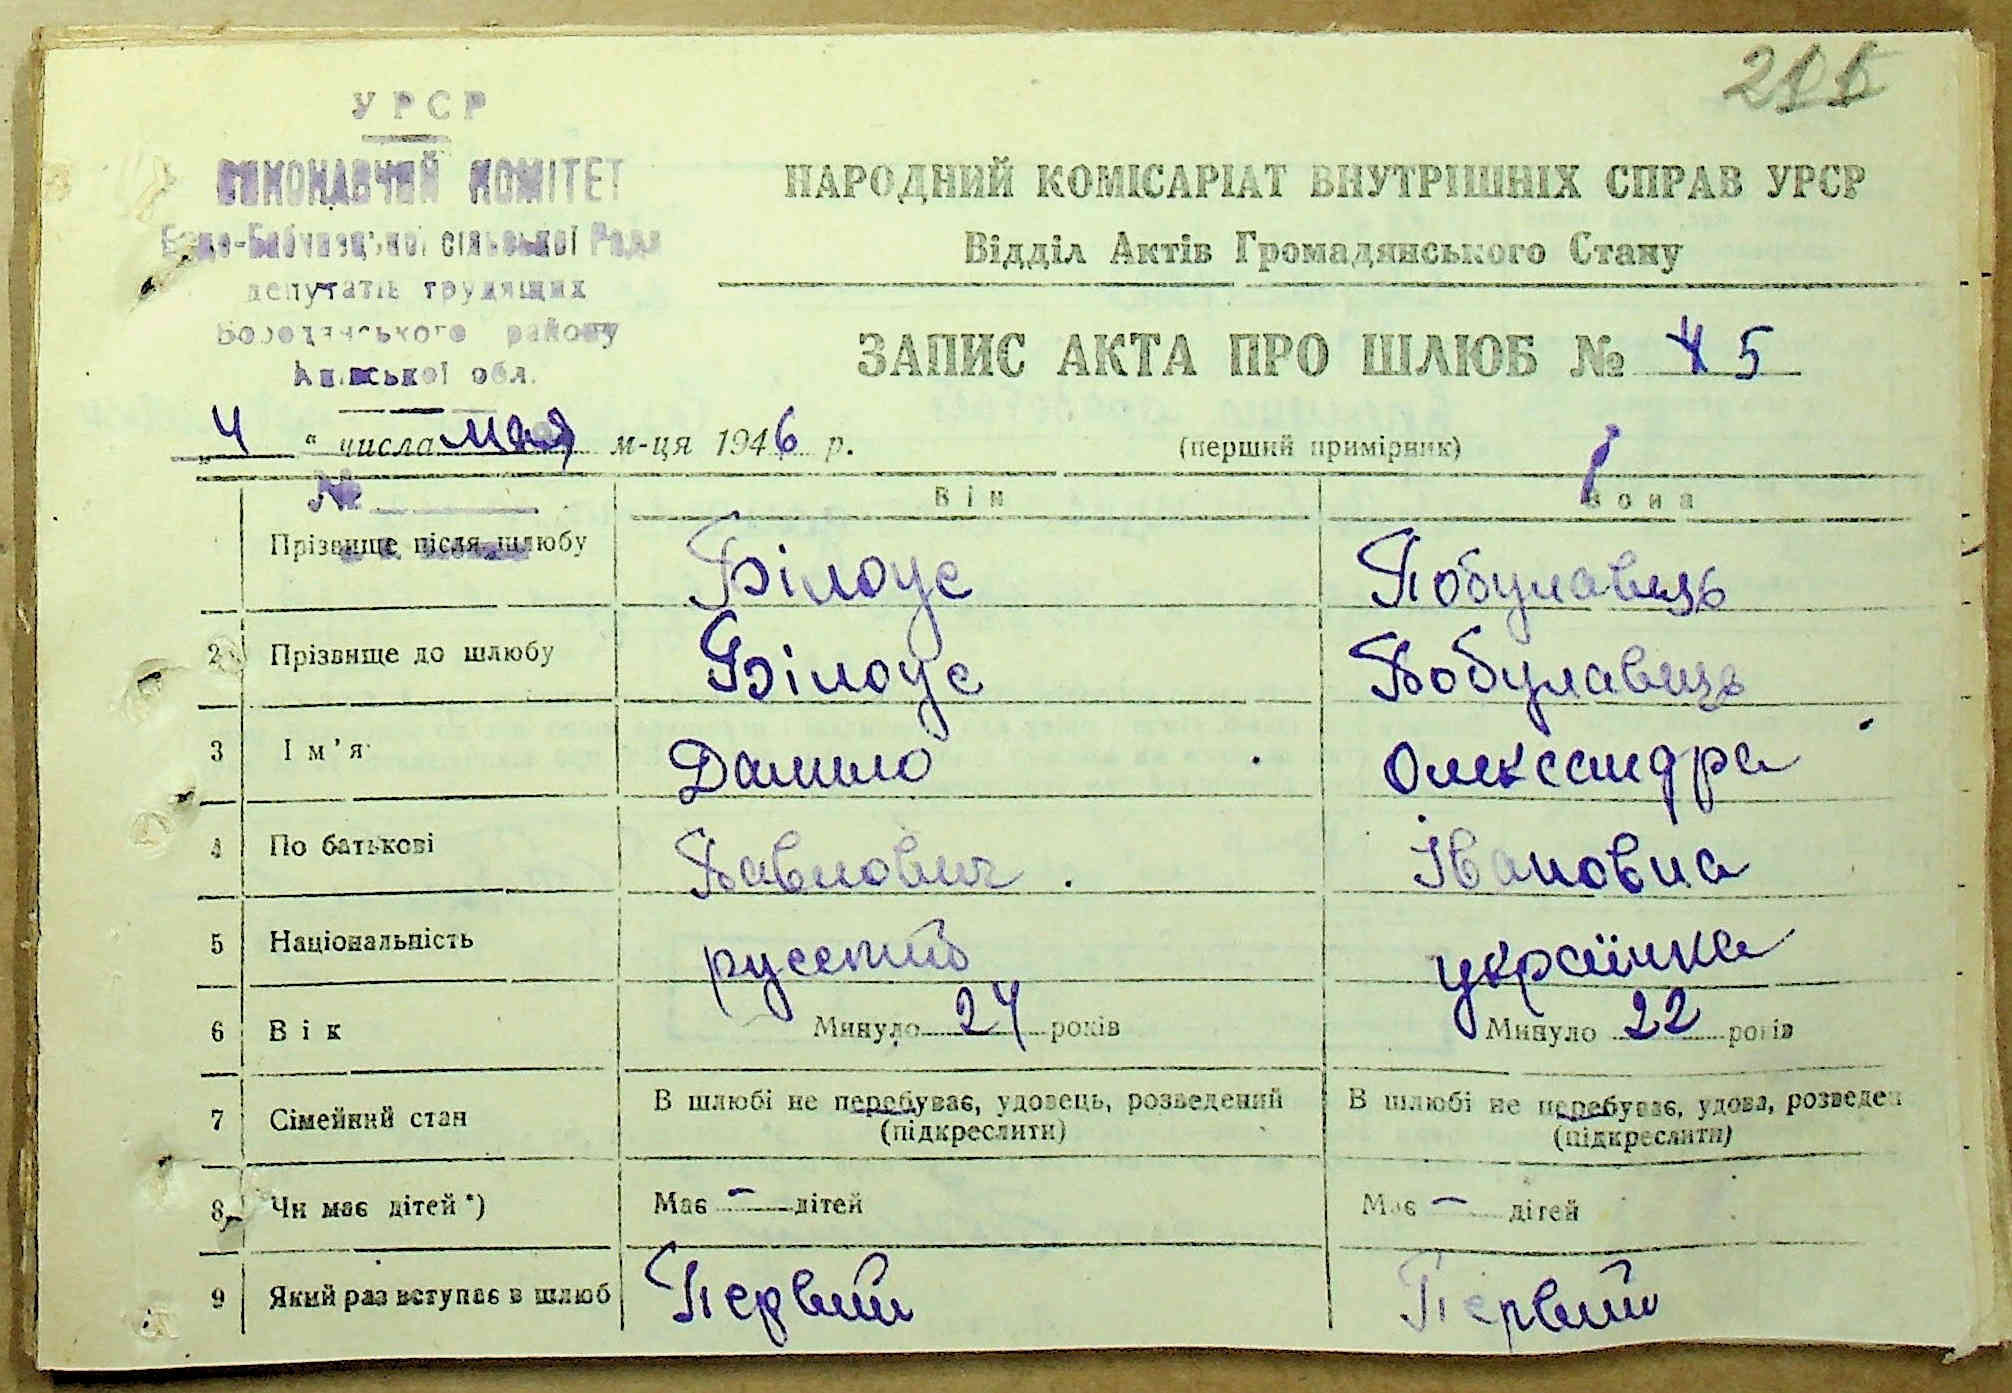 215
УРСР
ВИКОНАВЧИЙ КОМІТЕТ
сільської Ради
депутатів трудящих
Бородянського району
Київської обл.
№
НАРОДНИЙ КОМІСАРІАТ ВНУТРІШНІХ СПРАВ УРСР
Відділ Актів Громадянського Стану
ЗАПИС АКТА ПРО ШЛЮБ № 5
„4“ числа мая м-ця 1946 р.
(перший примірник)
Він Вона
Прізвище після шлюбу Білоус Побулавець
2 Прізвище до шлюбу Білоус Побулавець
3 Ім’я Данило Олександра
4 По батькові Павлович Івановна
5 Національність русский українка
6 Вік Минуло 24 років Минуло 22 років
7 Сімейний стан В шлюбі не перебуває, удовець, розведений (підкреслити) В шлюбі не перебуває, удова, розведен (підкреслити)
8 Чи має дітей *) Має – дітей Має – дітей
9 Який раз вступає в шлюб Первий Первий